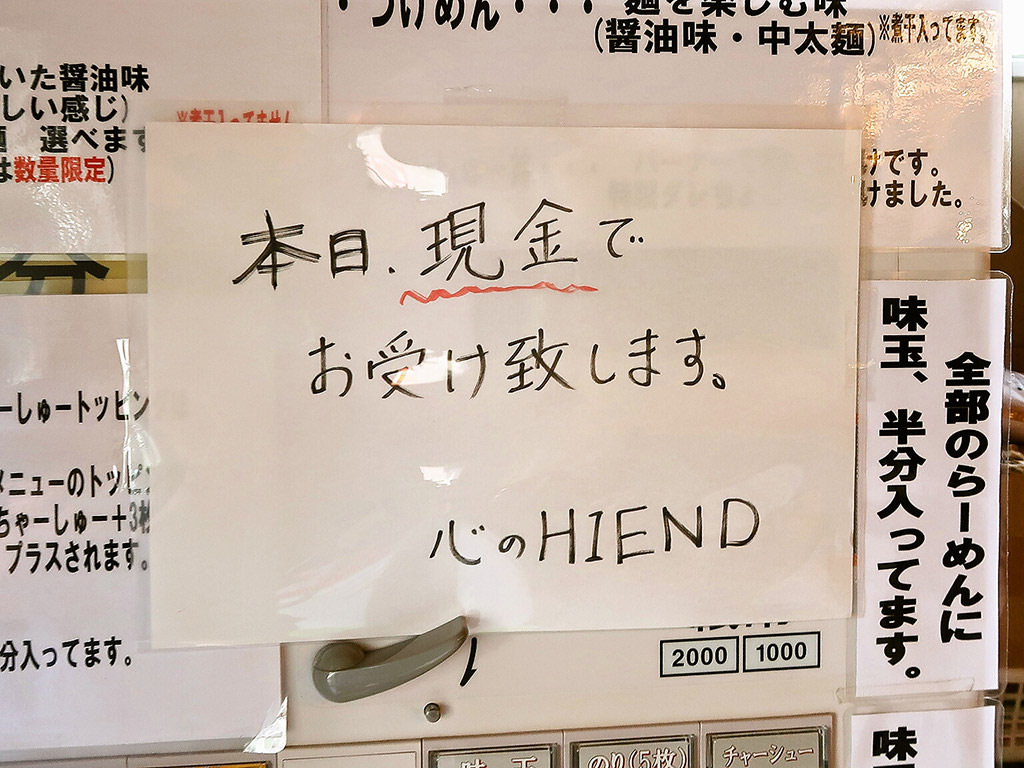 ・つけめん・・・麺を楽しむ味
(醤油味・中太麺)※煮干入ってます。
いた醤油味
しい感じ)
選べます
は数量限定)
※煮干入ってません
けです。
けました。
本日、現金で
お受け致します。
心のHIEND
ーしゅートッピン
メニューのトッピ
ちゃーしゅー+3枚
プラスされます。
分入ってます。
全部のらーめんに
味玉、半分入ってます。
2000 1000
味玉
のり(5枚)
チャーシュー
味